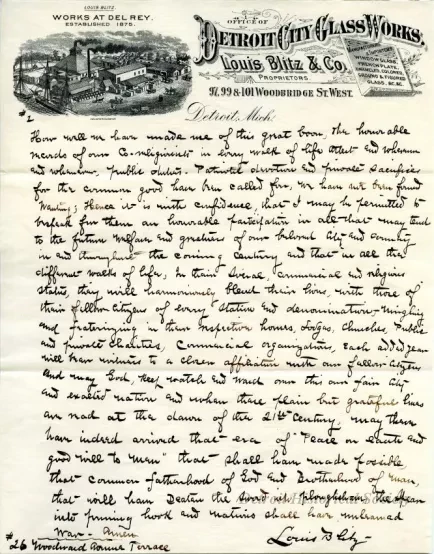 LOUIS BLITZ.
WORKS AT DEL REY.
ESTABLISHED 1875.
OFFICE OF
DETROIT CITY GLASS WORKS.
Louis Blitz & Co.
PROPRIETORS
97, 99 & 101 WOODBRIDGE ST. WEST.
WINDOW GLASS,
GROUND & FIGURED
GLASS, &C. &C.
Detroit, Mich.
#2
How well we have made use of this great boon, the honorable
records of our Co-religionists in every walk of life attest and wherever
and whenever, public duties. Patriotic devotion and private sacrifices
for the common good have been called for, we have not been found
Wanting; Hence it is with confidence, that I may be permitted to
bespeak for them an honorable participation in all that may tend
to the future welfare and greatness of our beloved City and country
in and throughout the coming century, and that in all the
different walks of life, in their social, commercial and religious
status, they will harmoniously blend their lives, with those of
their fellow Citizens of every station and denomination - Mingling
and fraternizing in their respective homes, Lodges, Churches, Public
and private Charities, Commercial organizations, Each added year
will bear witness to a closer affiliation with our fellow-Citizens
And may God, keep watch and ward over this our fair City
and exalted nation and when these plain but grateful lines
are read at the dawn of the 21st Century, may there
have indeed arrived that era of "Peace on Earth and
good will to men" that shall have made possible
that common fatherhood of God and Brotherhood of man,
that will have Beaten the Sword in ploughshare the Spear
into pruning hook and nations shall have unlearned
War - Amen
Louis Blitz -
#26 Woodward Avenue Terrace